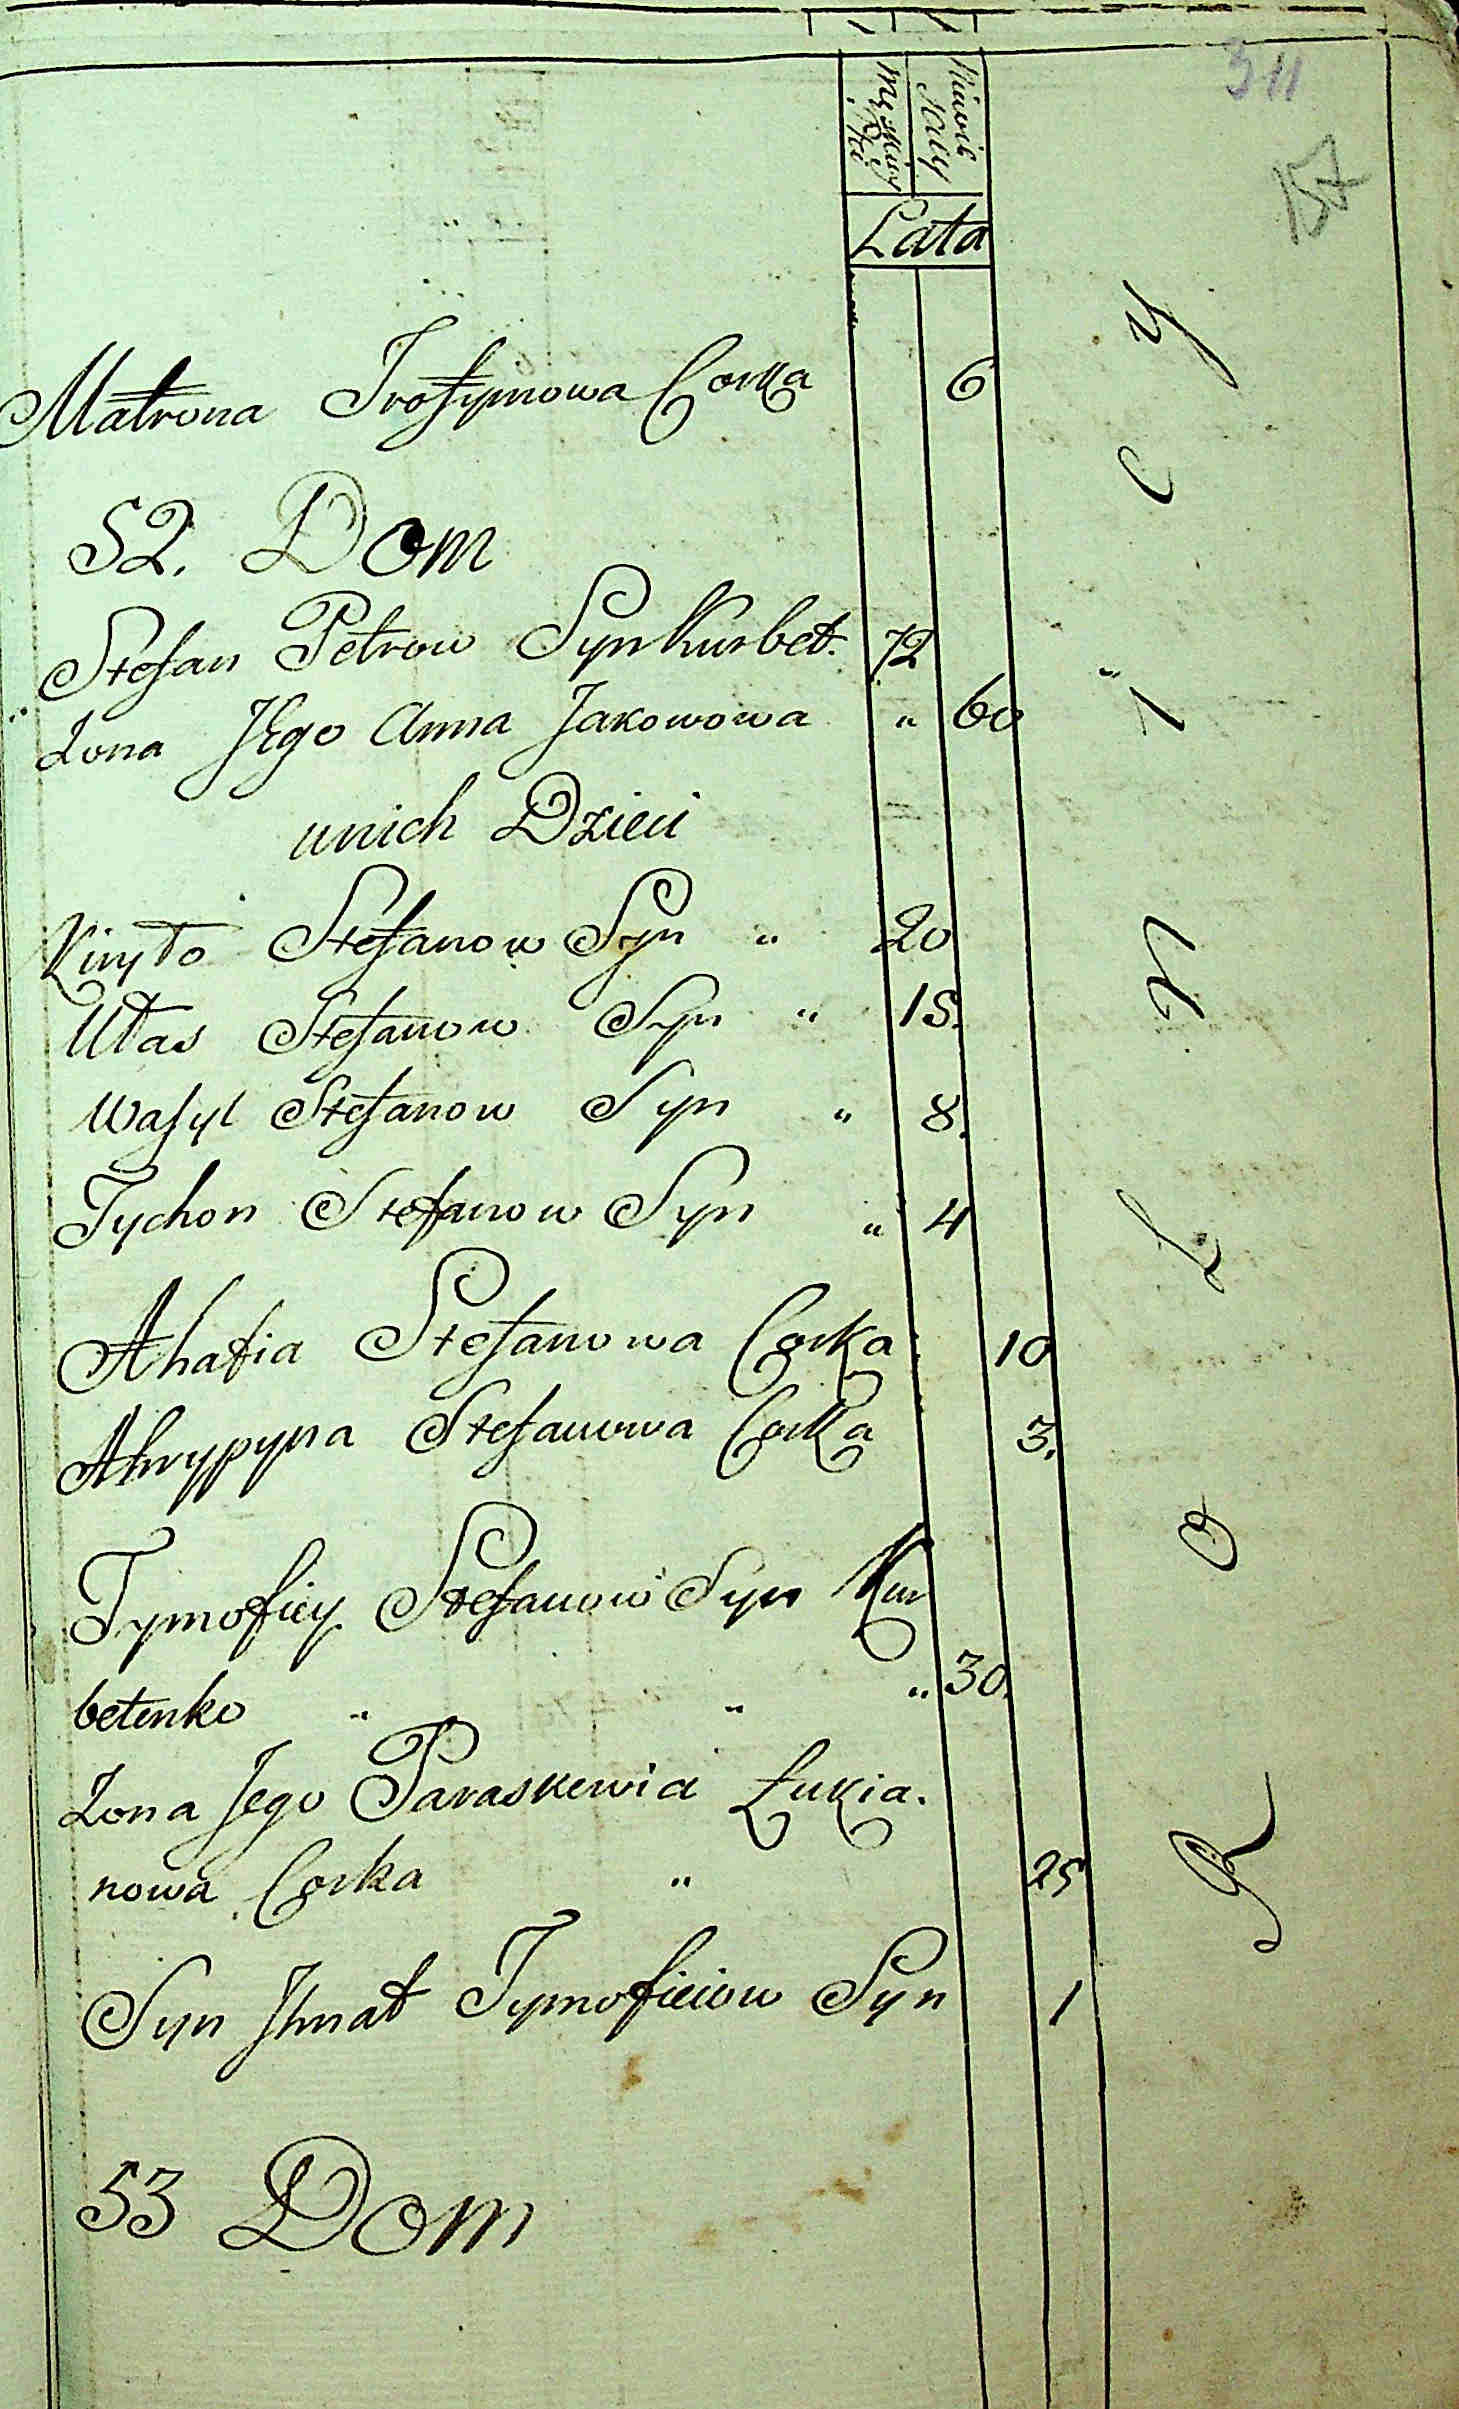 311
157
Lata
Matrona Trofymowa Corka 6
52. Dom
Stefan Petrow Syn Kurbet. 72
Zona Jego Anna Jakowowa " 60
unich Dzieci
Kiryło Stefanow Syn " 20
Ułas Stefanow Syn " 15.
Wasyl Stefanow Syn " 8.
Tychon Stefanow Syn " 4
Ahafia Stefanowa Corka 10
Ahrypyna Stefanowa Corka 3.
Tymofiey Stefanow Syn Kur
betenko " " " 30.
Zona Jego Paraskewia Łukia.
nowa Corka " 25
Syn Ihnat Tymofieiow Syn 1
53 Dom
R o l n i c y